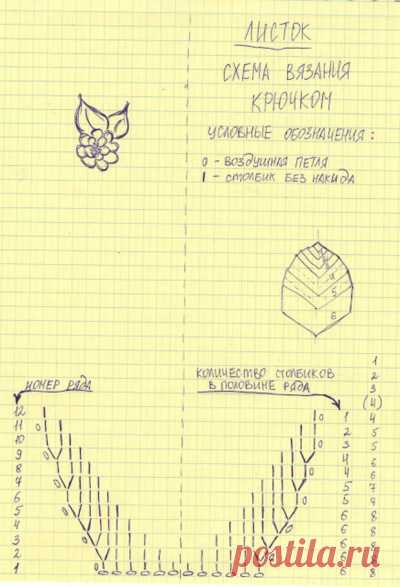 ЛИСТОК
СХЕМА ВЯЗАНИЯ
КРЮЧКОМ
УСЛОВНЫЕ ОБОЗНАЧЕНИЯ:
0 - ВОЗДУШНАЯ ПЕТЛЯ
I - СТОЛБИК БЕЗ НАКИДА
4
5
6
НОМЕР РЯДА
КОЛИЧЕСТВО СТОЛБИКОВ
В ПОЛОВИНЕ РЯДА
1
2
3
(4)
12 1 4
11 2 5
10 3 5
9 4 6
8 4 6
7 5 7
6 5 8
5 6 8
4 6 8
3 6 8
2 6 8
1 6 8
postila.ru